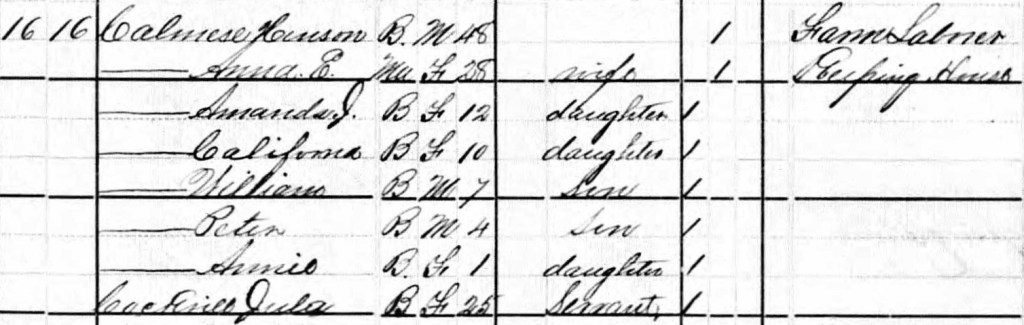 16 16 Calmese Hinson B. M 48 1 Farm Laborer
—— Anna. E. Mu F 28 wife 1 Keeping House
—— Amanda J. B F 12 daughter 1
—— California B F 10 daughter 1
—— William B M 7 son 1
—— Peter B M 4 son 1
—— Annie B. F 1 daughter 1
Julia B F 25 Servant, 1